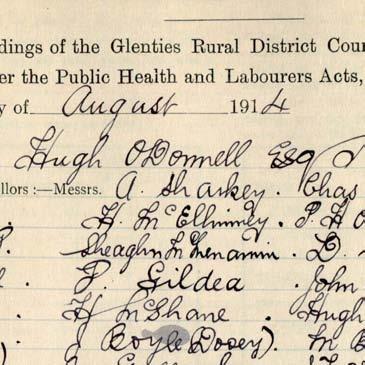 dings of the Glenties Rural District Cour
er the Public Health and Labourers Acts,
y of August 1914
Hugh O'Donnell Esq
llors :—Messrs. A. Sharkey. Chas
H. McElhinney. P. H O
Sheaghn McMenamin. D.
P. Gildea. John
H McShane. Hugh
J Boyle (Dosey). M B